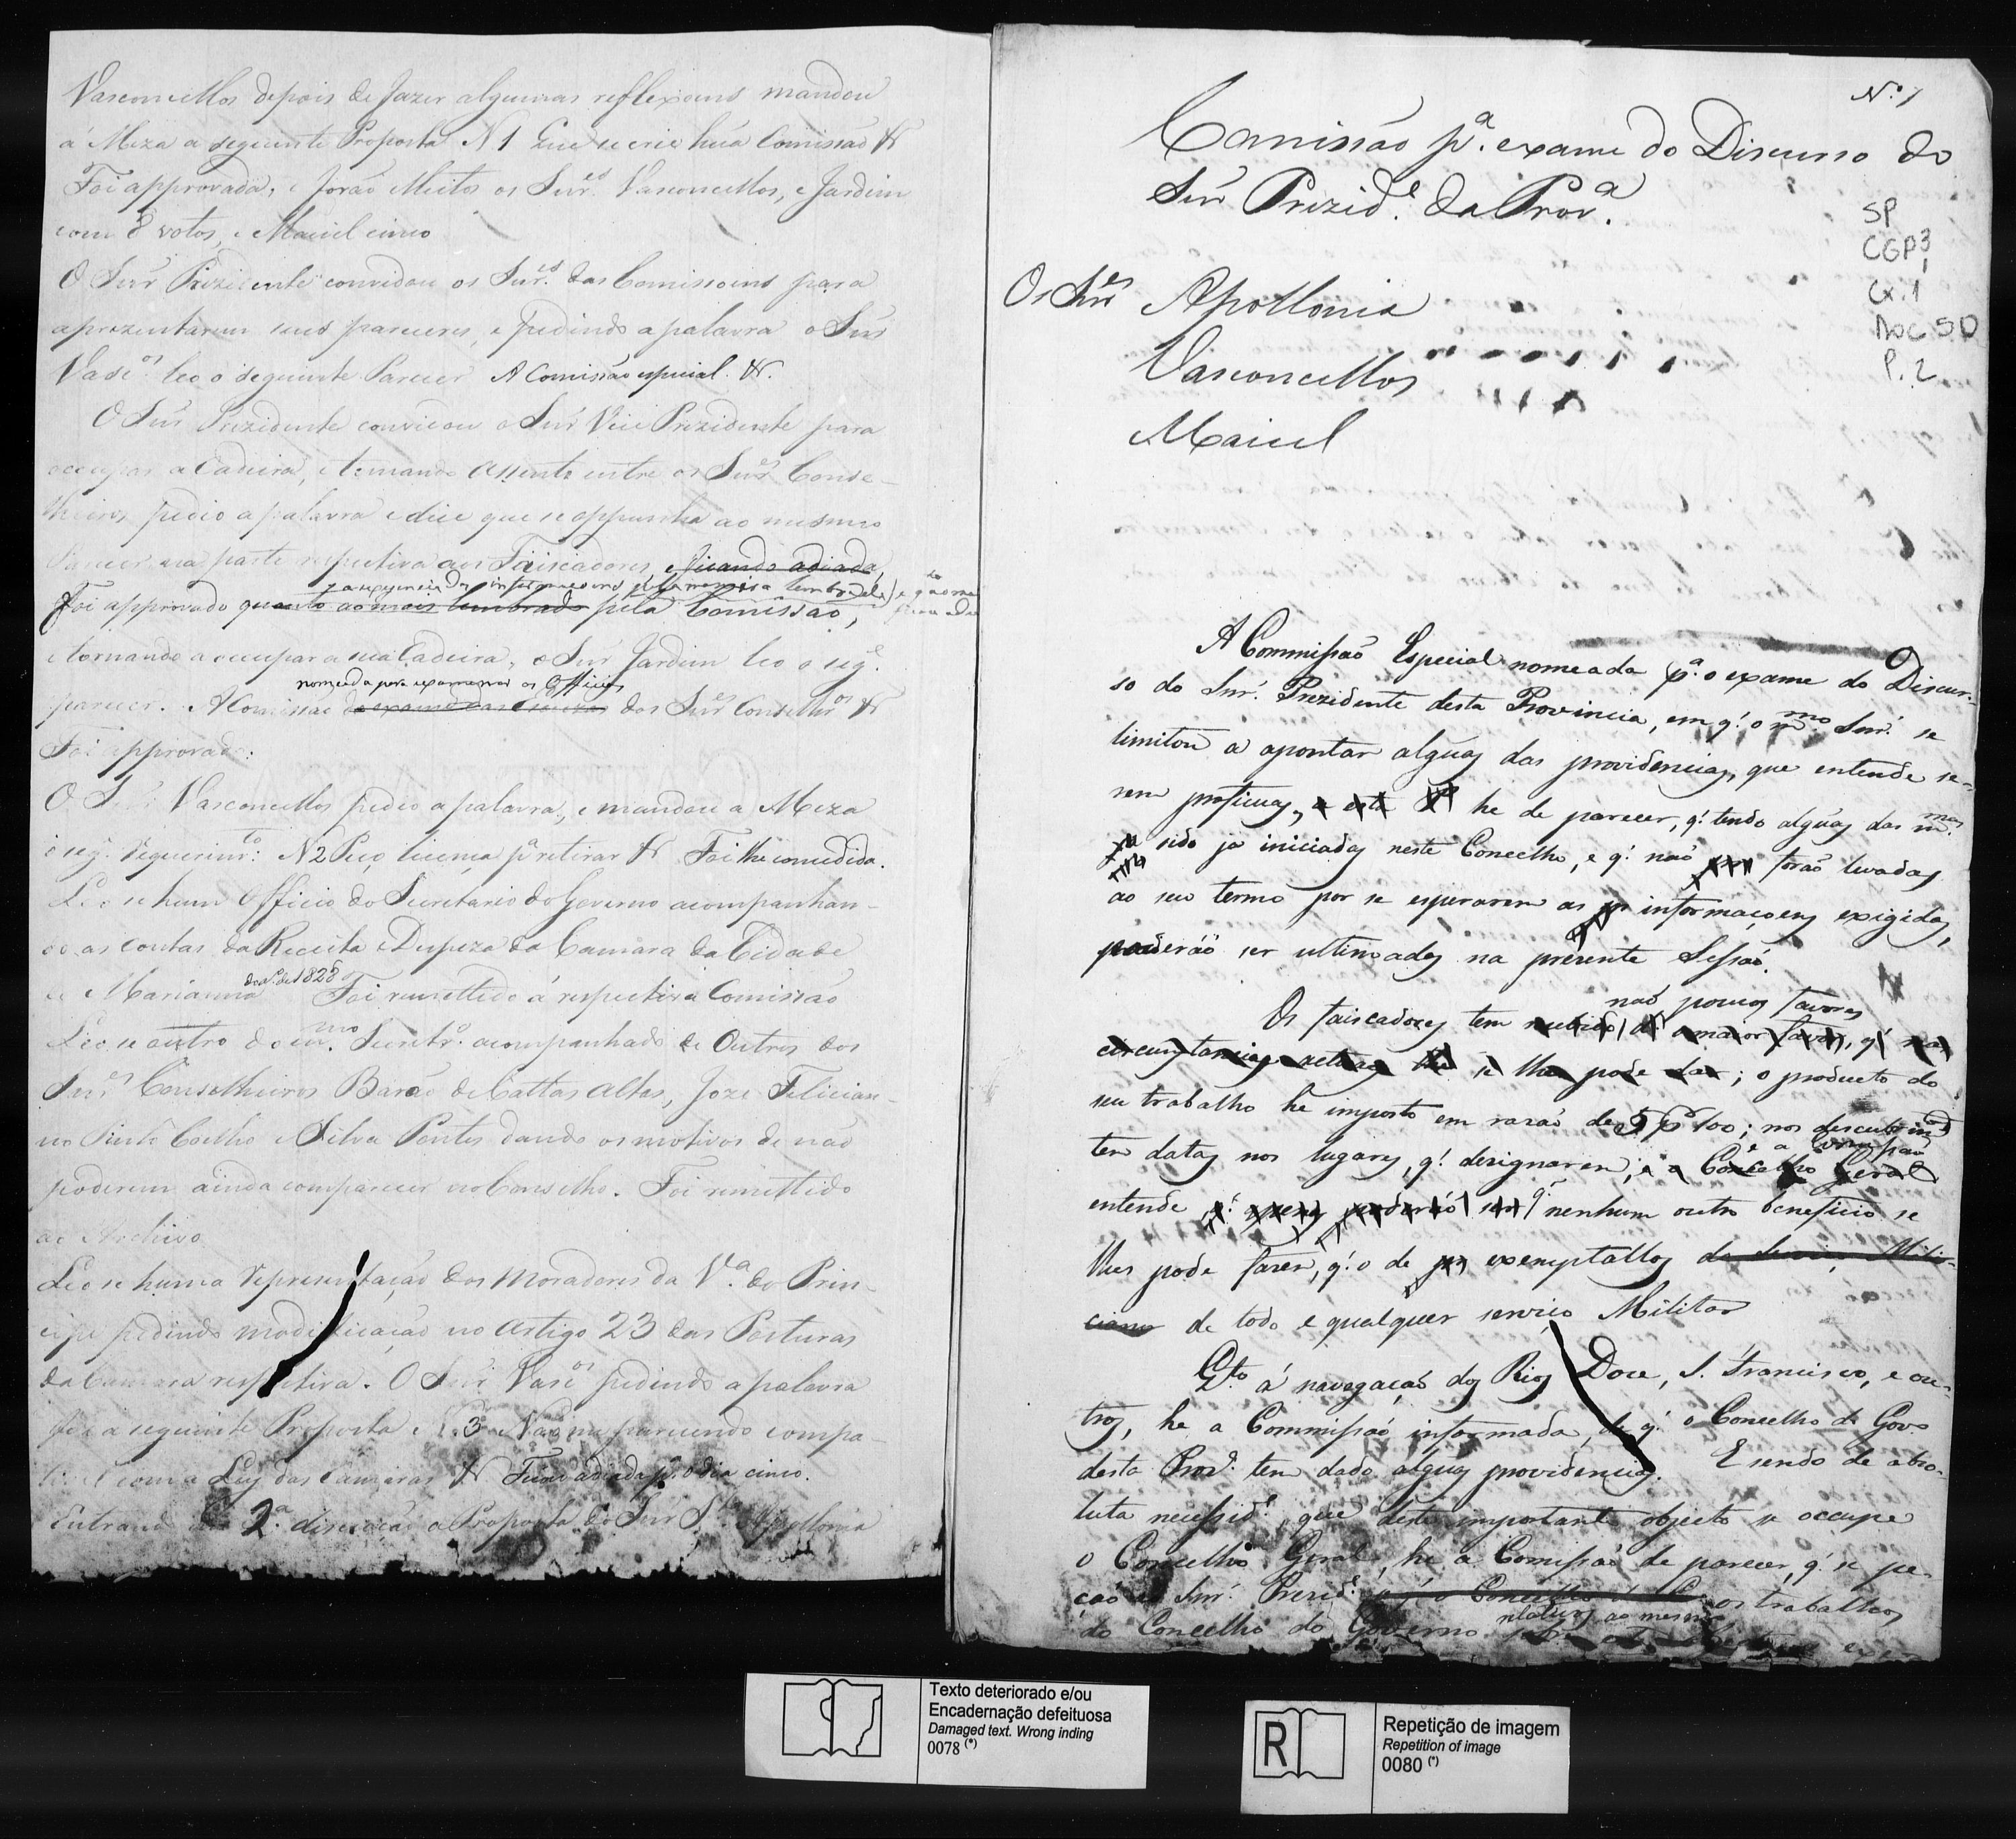 Vasconcellos depois de fazer algumas reflexoens mandou
á Meza a seguinte Proposta N 1 Que se crie hũa Comissaõ &
Foi approvada, e foraõ eleitos os Snr.es Vasconcellos, e Jardim
com 8 votos, e Maciel cinco
O Snr Prezidente convidou os Snr.es das Comissoens para
aprezentarem seus pareceres, e pedindo a palavra o Snr
Vasc.os leo o seguinte Parecer A Comissaõ especial &.
O Snr Prezidente convidou o Snr Vice Prezidente para
occupar a Cadeira, e tomando assento entre os Snr.es Conse-
lheiros pedio a palavra e dice que se oppunha ao mesmo
Parecer na parte respectiva aos Faiscadores, e ficando adiada,
Foi approvado quanto ao mais lembrado pela Comissaõ,
e tornando a occupar a sua Cadeira, o Snr Jardim leo o seg.e
nomeada para examinar os Officios
parecer. A Comissaõ dos Snr.es Conselhr.os &
Foi approvado:
O Snr Vasconcellos pedio a palavra, e mandou a Meza
o seg.e requerim.to: N2 Peço licença p.a retirar & Foi lhe concedida.
Leo se hum Officio do Secretario do Governo acompanhan-
do as contas da Receita e Despeza da Camara da Cidade
de Marianna do a.o de 1828 Foi remettido á respectiva Comissaõ
Leo se outro do m.mo Secretr.o acompanhado de Outros dos
Snr.es Conselheiros Baraõ de Cattas Altas, Joze Felician-
no Pinto Coelho e Silva Pontes dando os motivos de naõ
poderem ainda comparecer no Conselho. Foi remettido
ao Archivo
Leo se huma representaçaõ dos Moradores da V.a do Prin-
cipe pedindo modificaçaõ no Artigo 23 das Posturas
da Camara respectiva. O Snr Vasc.os pedindo a palavra
fez a seguinte Proposta N.3 Naõ me parecendo compa-
tivel com a Ley das Camaras & Ficou adiada p.a o dia cinco.
Entrand em 2.a discuçaõ a Proposta do Snr S.ta Apollonia
N.o 1
Comissaõ p.a exame do Discurso do
Snr Prezid.e da Prov.a
SP
CGP3
1
Cx.1
Doc SD
P.2
Os Snr.es Apollonia
Vasconcellos
Maciel
A Commissaõ Especial nomeada p.a o exame do Discur-
so do Snr. Prezidente desta Provincia, em q.' o m.mo Snr. se
limitou a apontar algũas das providencias, que entende se-
rem proficuas, he de parecer, q.' tendo algũas das m.mas
sido já iniciadas neste Concelho, e q.' naõ foraõ levadas
ao seu termo por se esperarem as informaçoens exigidas,
poderáõ ser ultimadas na prezente Sessaõ.
naõ poucos favores
Os faiscadores tem recebido o maior favor, q.' nas
circunstancias actuaes se lhes pode dar; o producto do
seu trabalho he imposto em razaõ de 5 p.o 100; nos descubertos
tem datas nos lugares, q.' designarem; e a Commissaõ
entende q.' nenhum outro beneficio se
lhes pode fazer, q.' o de exemptallos do Serviço Mili-
ciano de todo e qualquer serviço Militar
Q.to á navegaçaõ dos Rios Doce, S. Francisco, e ou-
tros, he a Commissaõ informada, de q.' o Concelho do Gov.o
desta Prov.a tem dado algũas providencias. E sendo de abso-
luta necessid.e, que deste importante objecto se occupe
o Concelho Geral, he a Comissaõ de parecer, q.' se pe-
çaõ ao Snr. Prezid.e os trabalhos
do Concelho do Governo relativos ao mesmo
Texto deteriorado e/ou
Encadernação defeituosa
Damaged text. Wrong inding
0078 (*)
R
Repetição de imagem
Repetition of image
0080 (*)